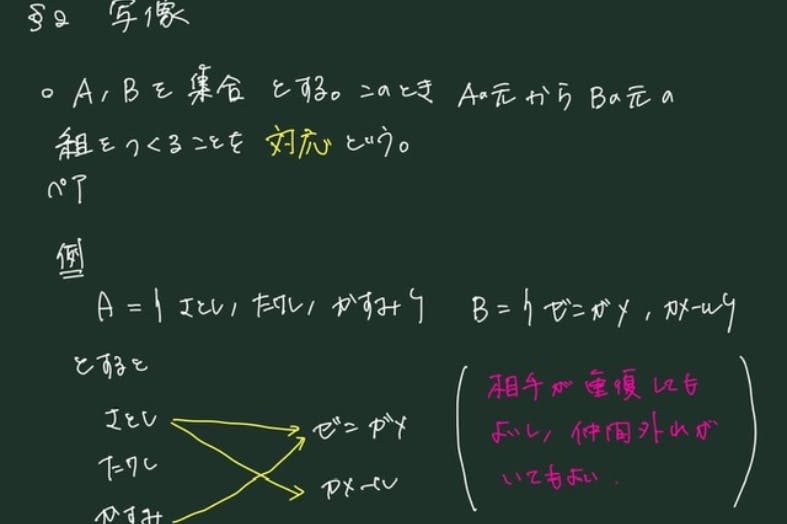 §2 写像
○ A, Bを集合とする。このとき Aの元からBの元の
組をつくることを対応という。
ペア
例
A = { さとし, たけし, かすみ } B = { ゼニガメ, カメール }
とすると
さとし ゼニガメ
たけし カメール
かすみ
(相手が重複しても
よいし, 仲間外れが
いてもよい.)